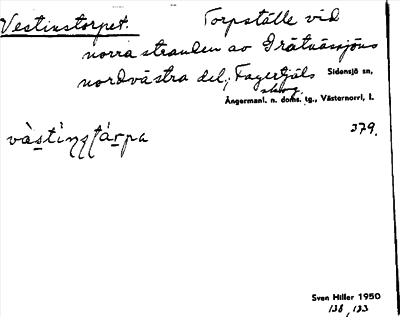 Vestinstorpet. Torpställe vid
norra stranden av Gråtnässjöns
nordvästra del, Fagertjäls
skog.
Sidensjö sn,
Ångermanl. n. doms. tg., Västernorrl, l.
379.
Sven Hiller 1950
136, 133